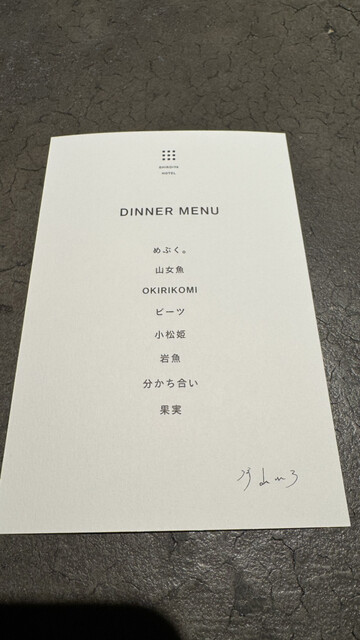 SHIROIYA
HOTEL
DINNER MENU
めぶく。
山女魚
OKIRIKOMI
ビーツ
小松姫
岩魚
分かち合い
果実